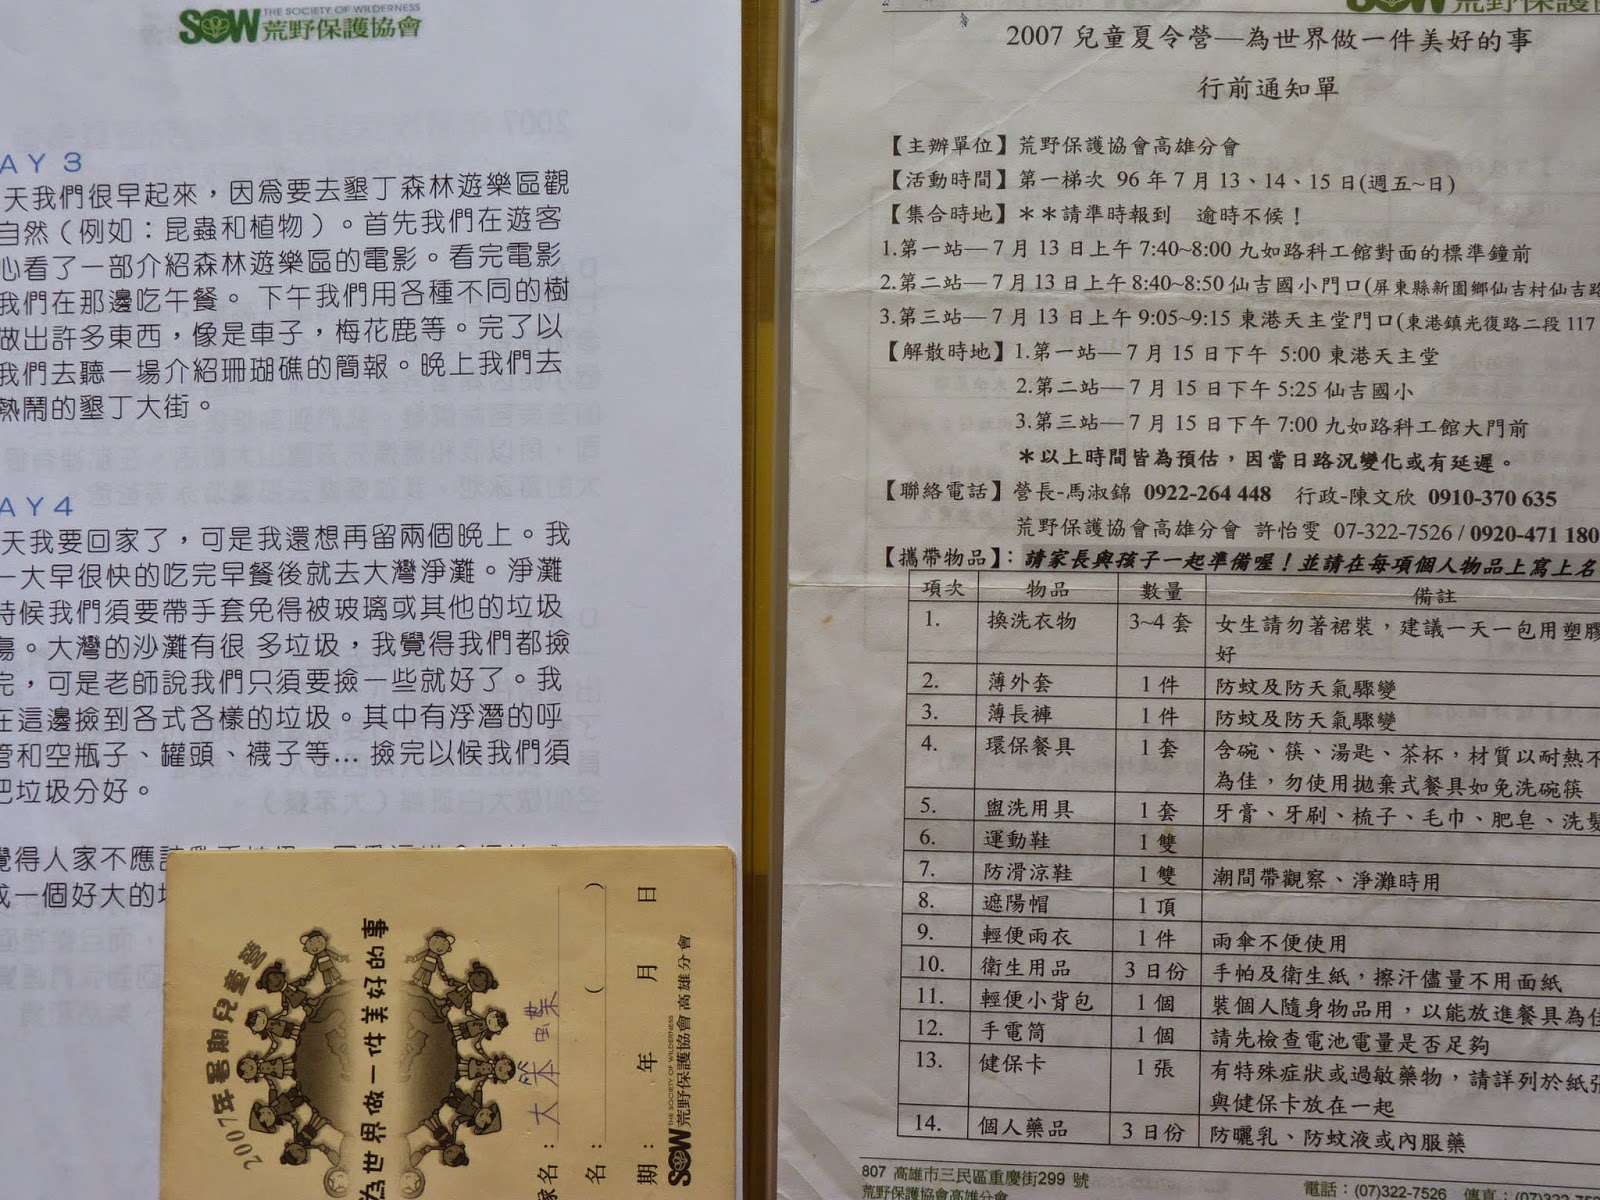 SOW THE SOCIETY OF WILDERNESS
荒野保護協會
AY 3
天我們很早起來，因為要去墾丁森林遊樂區觀
自然（例如：昆蟲和植物）。首先我們在遊客
心看了一部介紹森林遊樂區的電影。看完電影
我們在那邊吃午餐。 下午我們用各種不同的樹
做出許多東西，像是車子，梅花鹿等。完了以
我們去聽一場介紹珊瑚礁的簡報。晚上我們去
熱鬧的墾丁大街。
AY4
天我要回家了，可是我還想再留兩個晚上。我
一大早很快的吃完早餐後就去大灣淨灘。淨灘
時候我們須要帶手套免得被玻璃或其他的垃圾
傷。大灣的沙灘有很 多垃圾，我覺得我們都撿
完，可是老師說我們只須要撿一些就好了。我
在這邊撿到各式各樣的垃圾。其中有浮潛的呼
管和空瓶子、罐頭、襪子等... 撿完以候我們須
把垃圾分好。
覺得人家不應該
成一個好大的
2007年暑期兒童營
為世界做一件美好的事
隊名：大笨蝶
名：（ ）
期： 年 月 日
SOW THE SOCIETY OF WILDERNESS
荒野保護協會高雄分會
SOW 荒野保
2007 兒童夏令營—為世界做一件美好的事
行前通知單
【主辦單位】荒野保護協會高雄分會
【活動時間】第一梯次 96 年 7 月 13、14、15 日(週五~日)
【集合時地】＊＊請準時報到 逾時不候！
1.第一站— 7 月 13 日上午 7:40~8:00 九如路科工館對面的標準鐘前
2.第二站— 7 月 13 日上午 8:40~8:50 仙吉國小門口(屏東縣新園鄉仙吉村仙吉路
3.第三站— 7 月 13 日上午 9:05~9:15 東港天主堂門口(東港鎮光復路二段 117
【解散時地】1.第一站— 7 月 15 日下午 5:00 東港天主堂
2.第二站— 7 月 15 日下午 5:25 仙吉國小
3.第三站— 7 月 15 日下午 7:00 九如路科工館大門前
＊以上時間皆為預估，因當日路況變化或有延遲。
【聯絡電話】營長-馬淑錦 0922-264 448 行政-陳文欣 0910-370 635
荒野保護協會高雄分會 許怡雯 07-322-7526 / 0920-471 180
【攜帶物品】：請家長與孩子一起準備喔！並請在每項個人物品上寫上名
項次 物品 數量 備註
1. 換洗衣物 3~4 套 女生請勿著裙裝，建議一天一包用塑膠
好
2. 薄外套 1 件 防蚊及防天氣驟變
3. 薄長褲 1 件 防蚊及防天氣驟變
4. 環保餐具 1 套 含碗、筷、湯匙、茶杯，材質以耐熱不
為佳，勿使用拋棄式餐具如免洗碗筷
5. 盥洗用具 1 套 牙膏、牙刷、梳子、毛巾、肥皂、洗髮
6. 運動鞋 1 雙
7. 防滑涼鞋 1 雙 潮間帶觀察、淨灘時用
8. 遮陽帽 1 頂
9. 輕便雨衣 1 件 雨傘不便使用
10. 衛生用品 3 日份 手帕及衛生紙，擦汗儘量不用面紙
11. 輕便小背包 1 個 裝個人隨身物品用，以能放進餐具為佳
12. 手電筒 1 個 請先檢查電池電量是否足夠
13. 健保卡 1 張 有特殊症狀或過敏藥物，請詳列於紙張
與健保卡放在一起
14. 個人藥品 3 日份 防曬乳、防蚊液或內服藥
807 高雄市三民區重慶街299 號
荒野保護協會高雄分會
電話：(07)322-7526 傳真：(07)322-75